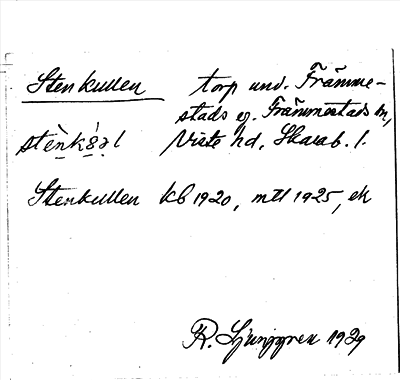 Stenkullen torp und. Främme-
stads eg. Främmestads sn,
stènk8́əl Viste hd, Skarab. l.
Stenkullen kb 1920, mtl 1925, ek
R. Ljunggren 1929